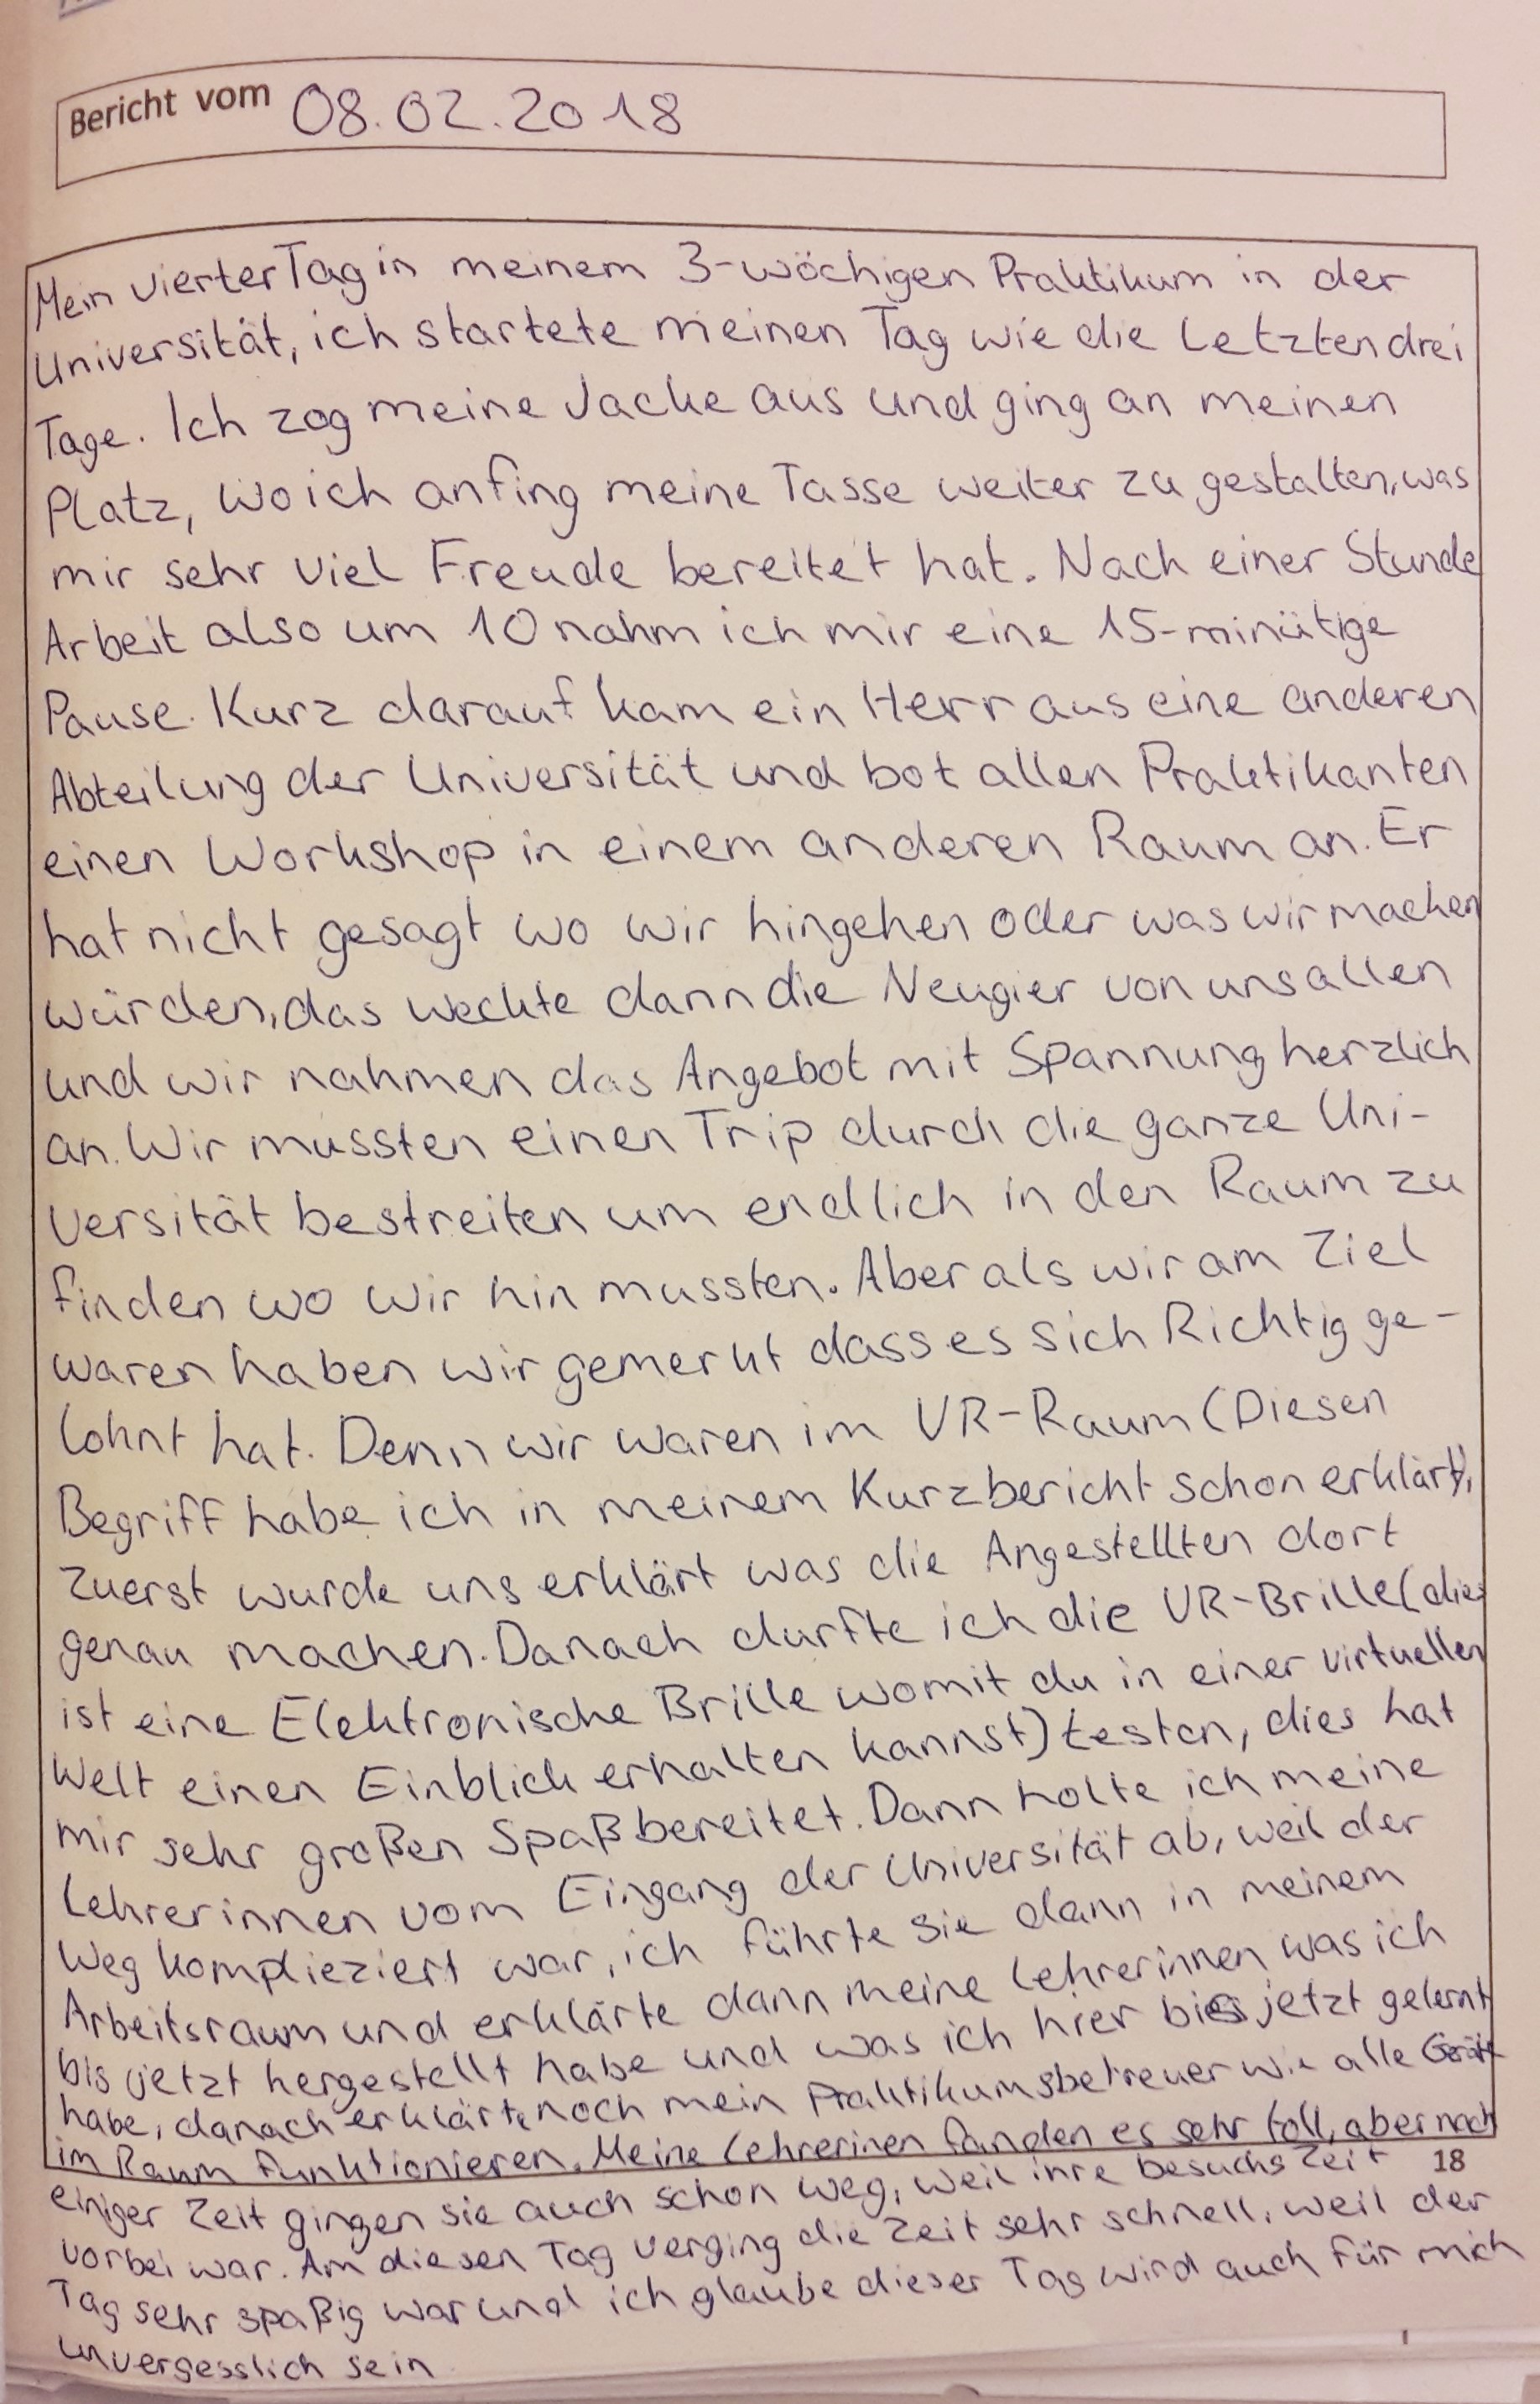 Bericht vom 08.02.2018
Mein vierter Tag in meinem 3-wöchigen Praktikum in der
Universität, ich startete meinen Tag wie die Letzten drei
Tage. Ich zog meine Jacke aus und ging an meinen
Platz, wo ich anfing meine Tasse weiter zu gestalten, was
mir sehr viel Freude bereitet hat. Nach einer Stunde
Arbeit also um 10 nahm ich mir eine 15-minütige
Pause. Kurz darauf kam ein Herr aus eine anderen
Abteilung der Universität und bot allen Praktikanten
einen Workshop in einem anderen Raum an. Er
hat nicht gesagt wo wir hingehen oder was wir machen
würden, das weckte dann die Neugier von uns allen
und wir nahmen das Angebot mit Spannung herzlich
an. Wir mussten einen Trip durch die ganze Uni-
versität bestreiten um endlich in den Raum zu
finden wo wir hin mussten. Aber als wir am Ziel
waren haben wir gemerkt dass es sich Richtig ge-
lohnt hat. Denn wir waren im VR-Raum (Diesen
Begriff habe ich in meinem Kurzbericht schon erklärt),
zuerst wurde uns erklärt was die Angestellten dort
genau machen. Danach durfte ich die VR-Brille (dies
ist eine Elektronische Brille womit du in einer virtuellen
Welt einen Einblick erhalten kannst) testen, dies hat
mir sehr großen Spaß bereitet. Dann holte ich meine
Lehrerinnen vom Eingang der Universität ab, weil der
Weg komplieziert war, ich führte sie dann in meinem
Arbeitsraum und erklärte dann meine Lehrerinnen was ich
bis jetzt hergestellt habe und was ich hier bis jetzt gelernt
habe, danach erklärte noch mein Praktikumsbetreuer wie alle Geräte
im Raum funktionieren. Meine Lehrerinen fanden es sehr toll, aber nach
18
einiger Zeit gingen sie auch schon weg, weil ihre besuchs Zeit
vorbei war. Am diesen Tag verging die Zeit sehr schnell, weil der
Tag sehr spaßig war und ich glaube dieser Tag wird auch für mich
unvergesslich sein